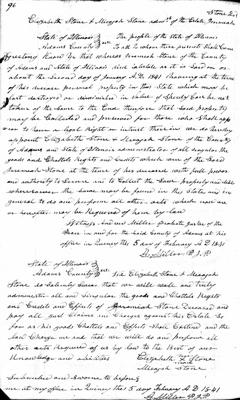 96
Elizabeth Stone & Micajah Stone adm'rs of the Estate Jeremiah Stone
State of Illinois
Adams County The people of the state of Illinois
To all to whom these presents Shall Come
Greeting Know ye that whereas Jeremiah Stone of the County
of Adams and State of Illinois died intestate as it is said on or
about the Second day of January A.D. 1841 having at the time
of his decease personal property in this State which may be
lost destroyed or diminished in value if Speedy Care be not
taken of the Same To the end therefore that Said property
may be Collected and preserved for those who Shall appear
to have a legal Right or interest therein we do hereby
appoint Elizabeth Stone and Micajah Stone of the County
of Adams and State of Illinois administrators of all Singular the
goods and Chattels Rights and Credits which were of the Said
Jeremiah Stone at the time of his decease with full power
and authority to Secure and to Collect the Same property and debts
wheresoever the same may be found in this State and in
general to do and perform all other acts which now are
or hereafter may be Required of them by law
Witness Miller Probate Justice of the
Peace in and for the Said County of Adams at his
office in Quincy this 5 day of February A.D. 1841
Miller P.J.P.
State of Illinois
Adams County We Elizabeth Stone & Micajah
Stone do Solemnly Swear that we will well and truly
administer all and Singular the goods and Chattels Rights
and Credits and Effects of Jeremiah Stone Deceased and
pay all Just Claims and Charges against his Estate So
far as his goods Chattels and Effects Shall Extend and the
law Charge us and that we will do and perform all
other acts Required of us by law to the best of our
Knowledge and abilities
Elizabeth Stone
Micajah Stone
Subscribed and Sworn to before
me at my office in Quincy this 5 day February A.D. 1841
Miller P.J.P.